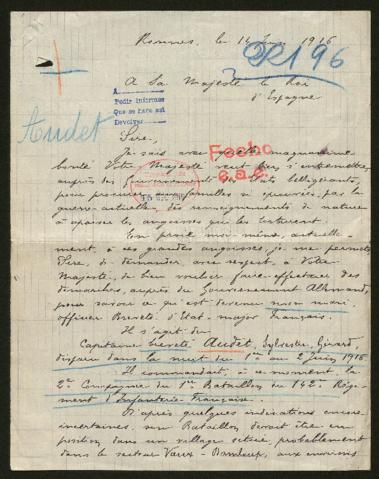 Rennes, le 14 Juin 1916
R196
A Sa Majesté le Roi
d'Espagne
A
Pedir informes
Que se hace así
Devolver
Audet
Sire,
Je sais avec quelle magnanime
bonté Votre Majesté veut bien s'entremettre,
auprès des Gouvernements des États belligérants,
pour procurer aux familles si éprouvées par la
guerre actuelle, des renseignements de nature
à apaiser les angoisses qui les torturent.
En proie moi-même, actuelle-
ment, à ces grandes angoisses, je me permets,
Sire, de demander, avec respect, à Votre
Majesté, de bien vouloir faire effectuer des
démarches, auprès du Gouvernement Allemand,
pour savoir ce qu'est devenu mon mari,
officier Breveté d'État-major Français.
Il s'agit du
Capitaine breveté Audet, Sylvestre, Girard,
disparu dans la nuit du 1er au 2 Juin 1916
Il commandait, à ce moment, la
2e Compagnie du 1er Bataillon du 142e Régi-
ment d'Infanterie Française.
D'après quelques indications encore
incertaines, son Bataillon devait être en
position dans un village situé, probablement
dans le secteur Vaux-Damloup, aux environs